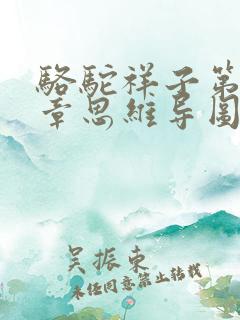 駱駝祥子第
章思維導圖
吴振東
未经同意禁止转载